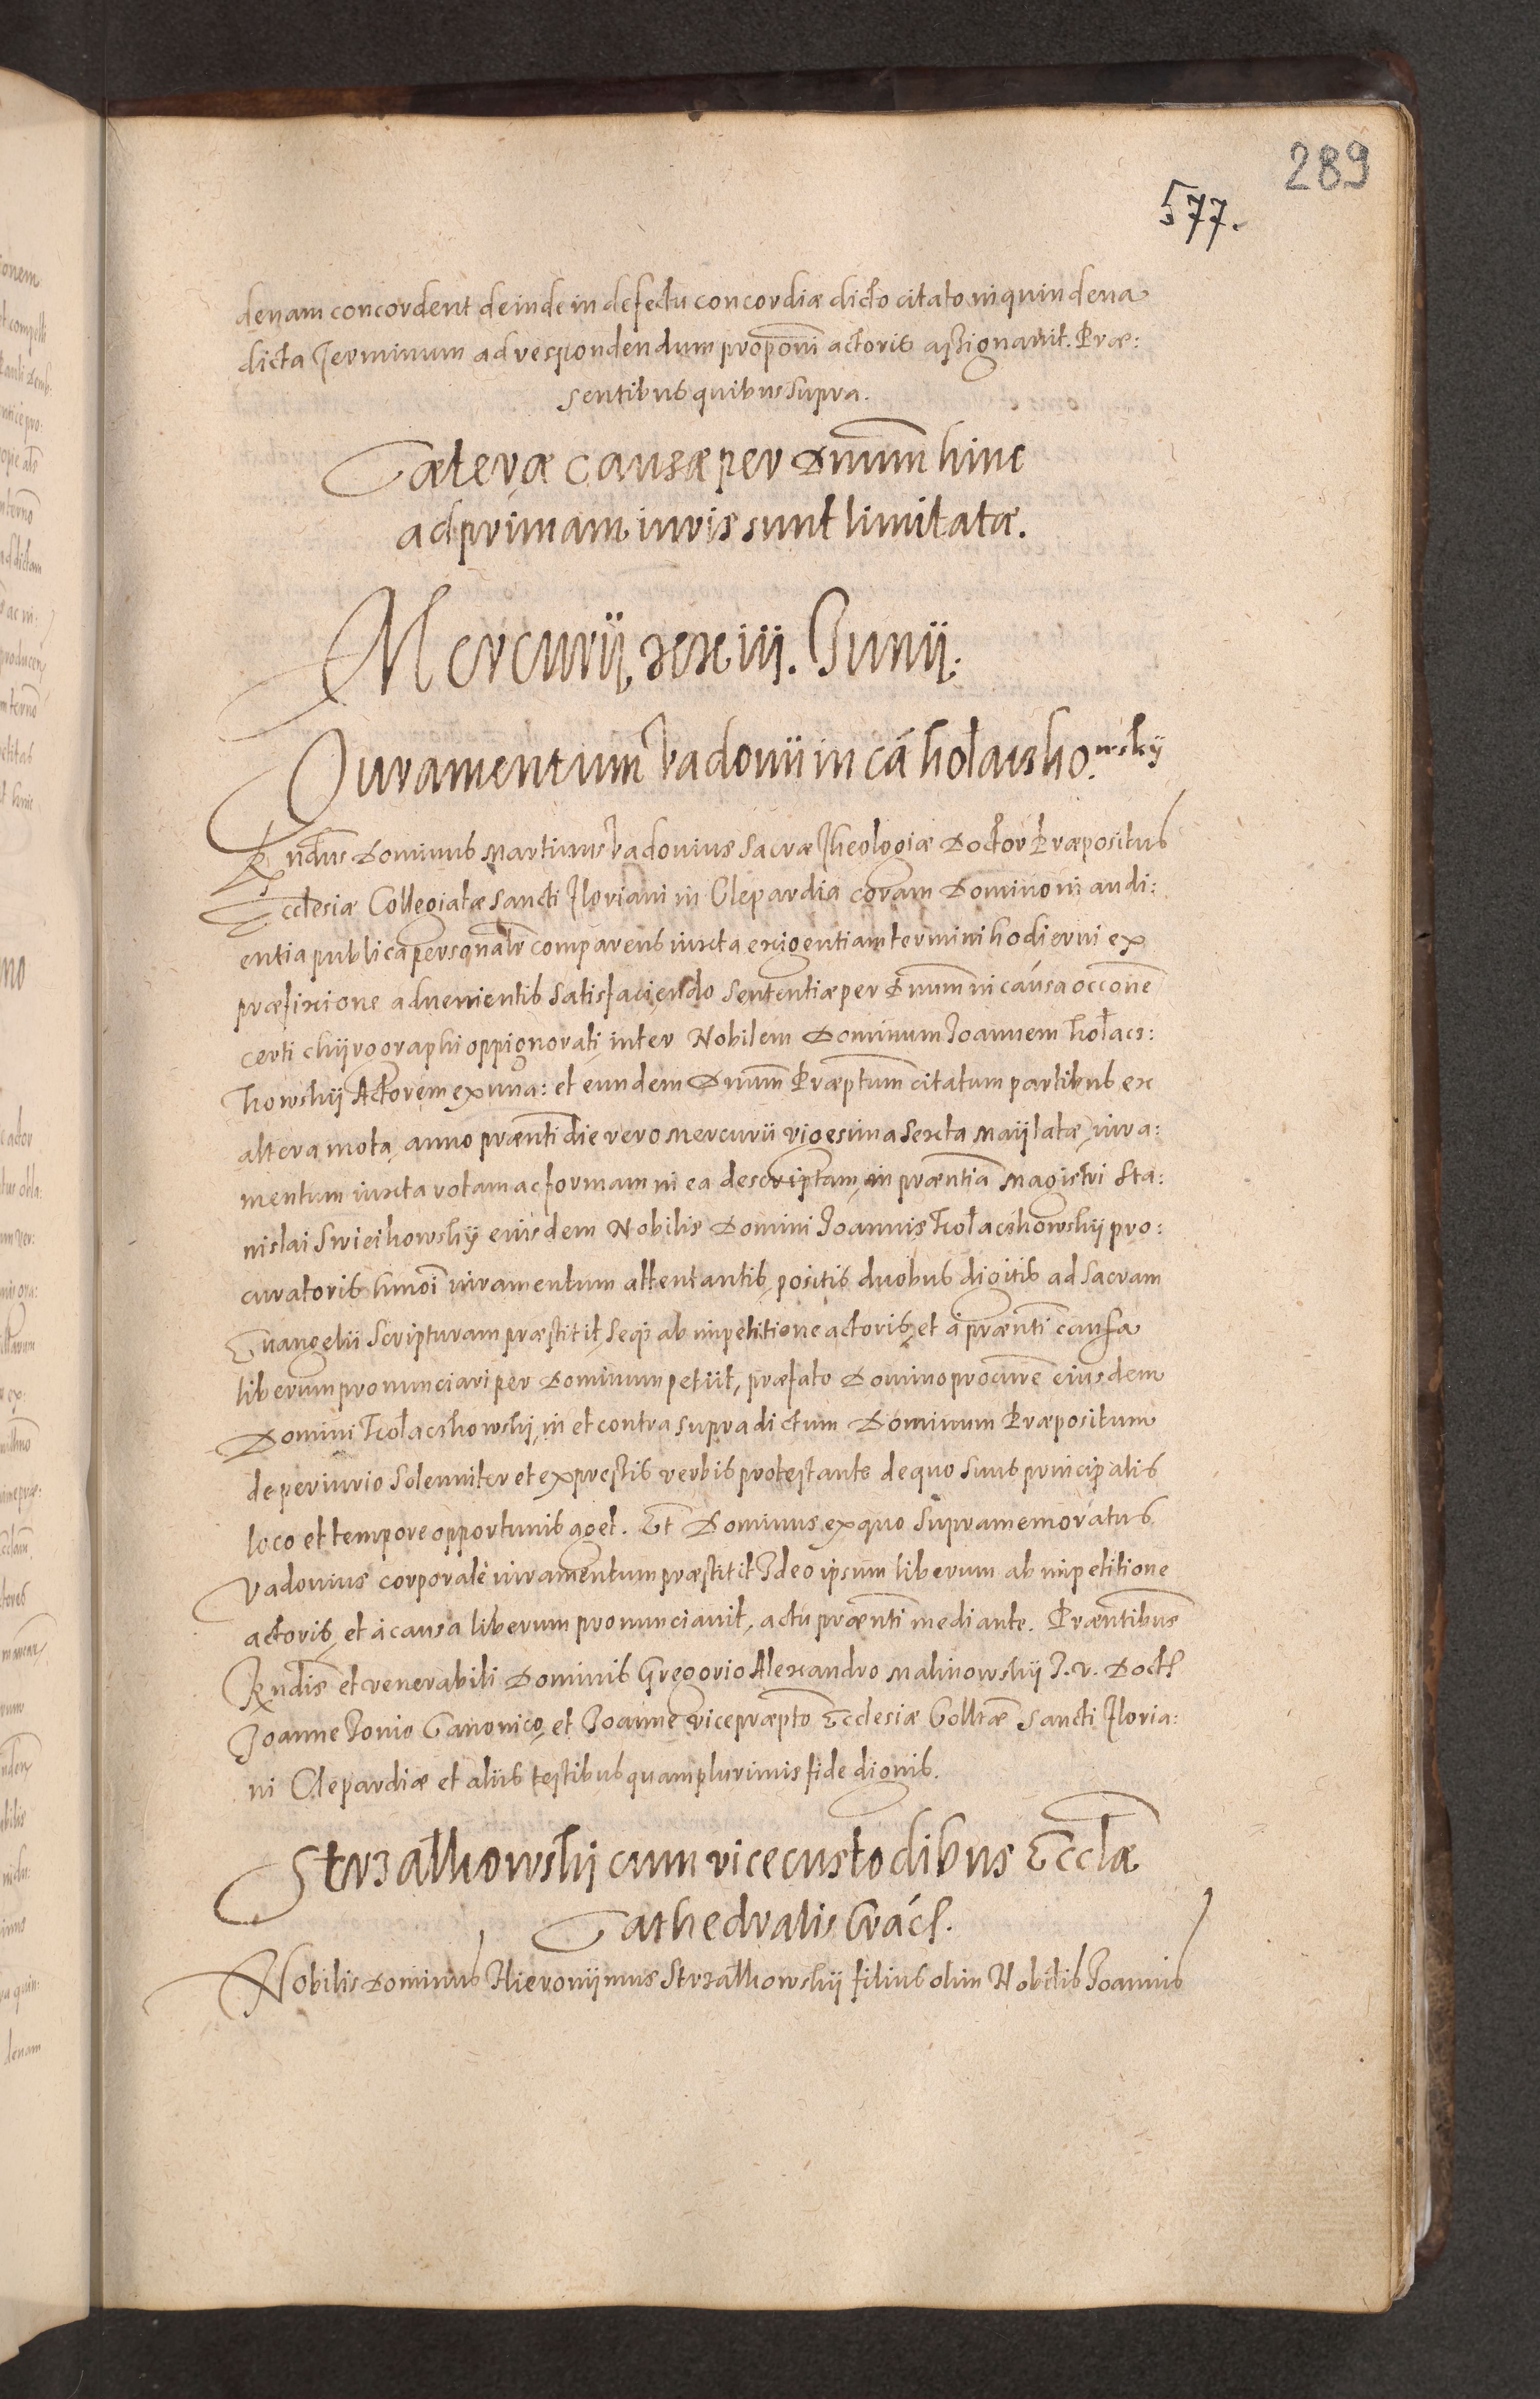 289
577.
denam concordent deinde in defectu concordiæ dicto citato in quindena
dicta Terminum ad respondendum propõni actoris assignavit. Præ:
sentibus quibus supra.
Cæteræ causæ per Dnum̄ hinc
ad primam iuris sunt limitatæ.
Mercurij, xxiij. Junij.
Juramentum Vadovii in cā Kołaczko.wskij
Rndus Dominus Martinus Vadovius Sacræ Theologiæ Doctor Præpositus
Ecclesiæ Collegiatæ Sancti Floriani in Clepardia coram Domino in audi:
entia publica personalr̄ comparens iuxta exigentiam termini hodierni ex
præfixione advenientis satisfaciendo Sententiæ per Dnum̄ in causa occōne
certi chyrographi oppignorati, inter Nobilem Dominum Joannem Kołacz:
kowskij Actorem ex una: et eundem Dnum̄ Præptum̄ citatum partibus ex
altera mota, anno præsnti die vero Mercurii vigesima Sexta Maij latæ, iura:
mentum iuxta rotam ac formam in ea descriptam, in præsentia Magistri Sta:
nislai Swieikowskij eiusdem Nobilis Domini Joannis Kołaczkowskij pro:
curatoris hmōi iuramentum attentantis, positis duobus digitis ad Sacram
Evangelii Scripturam præstitit, Seq̃ ab impetitione actoris, et a præsnti causa
liberum pronunciari per Dominum petiit, præfato Domino procur̄e eiusdem
Domini Kołaczkowski, in et contra supradictum Dominum Præpositum
de periurio Solenniter et expressis verbis protestante de quo Suus principalis
loco et tempore opportunis aget. Et Dominus ex quo Supramemoratus
Vadovius corporale iuramentum præstitit Ideo ipsum liberum ab impetitione
actoris, et à causa liberum pronunciavit, actu præsnti mediante. Præsntibus
Rndis et venerabili Dominis Gregorio Alexandro Malinowskij J. V. Doct.
Joanne Jonio Canonico, et Joanne vicepræpto Ecclesiæ Colltæ Sancti Floria:
ni Clepardiæ et aliis testibus quamplurimis fide dignis.
Strzałkowskij cum vicecustodibus Ecclæ
Cathedralis Crác.
Nobilis Dominus Hieronijmus Strzałkowskij filius olim Nobilis Joannis